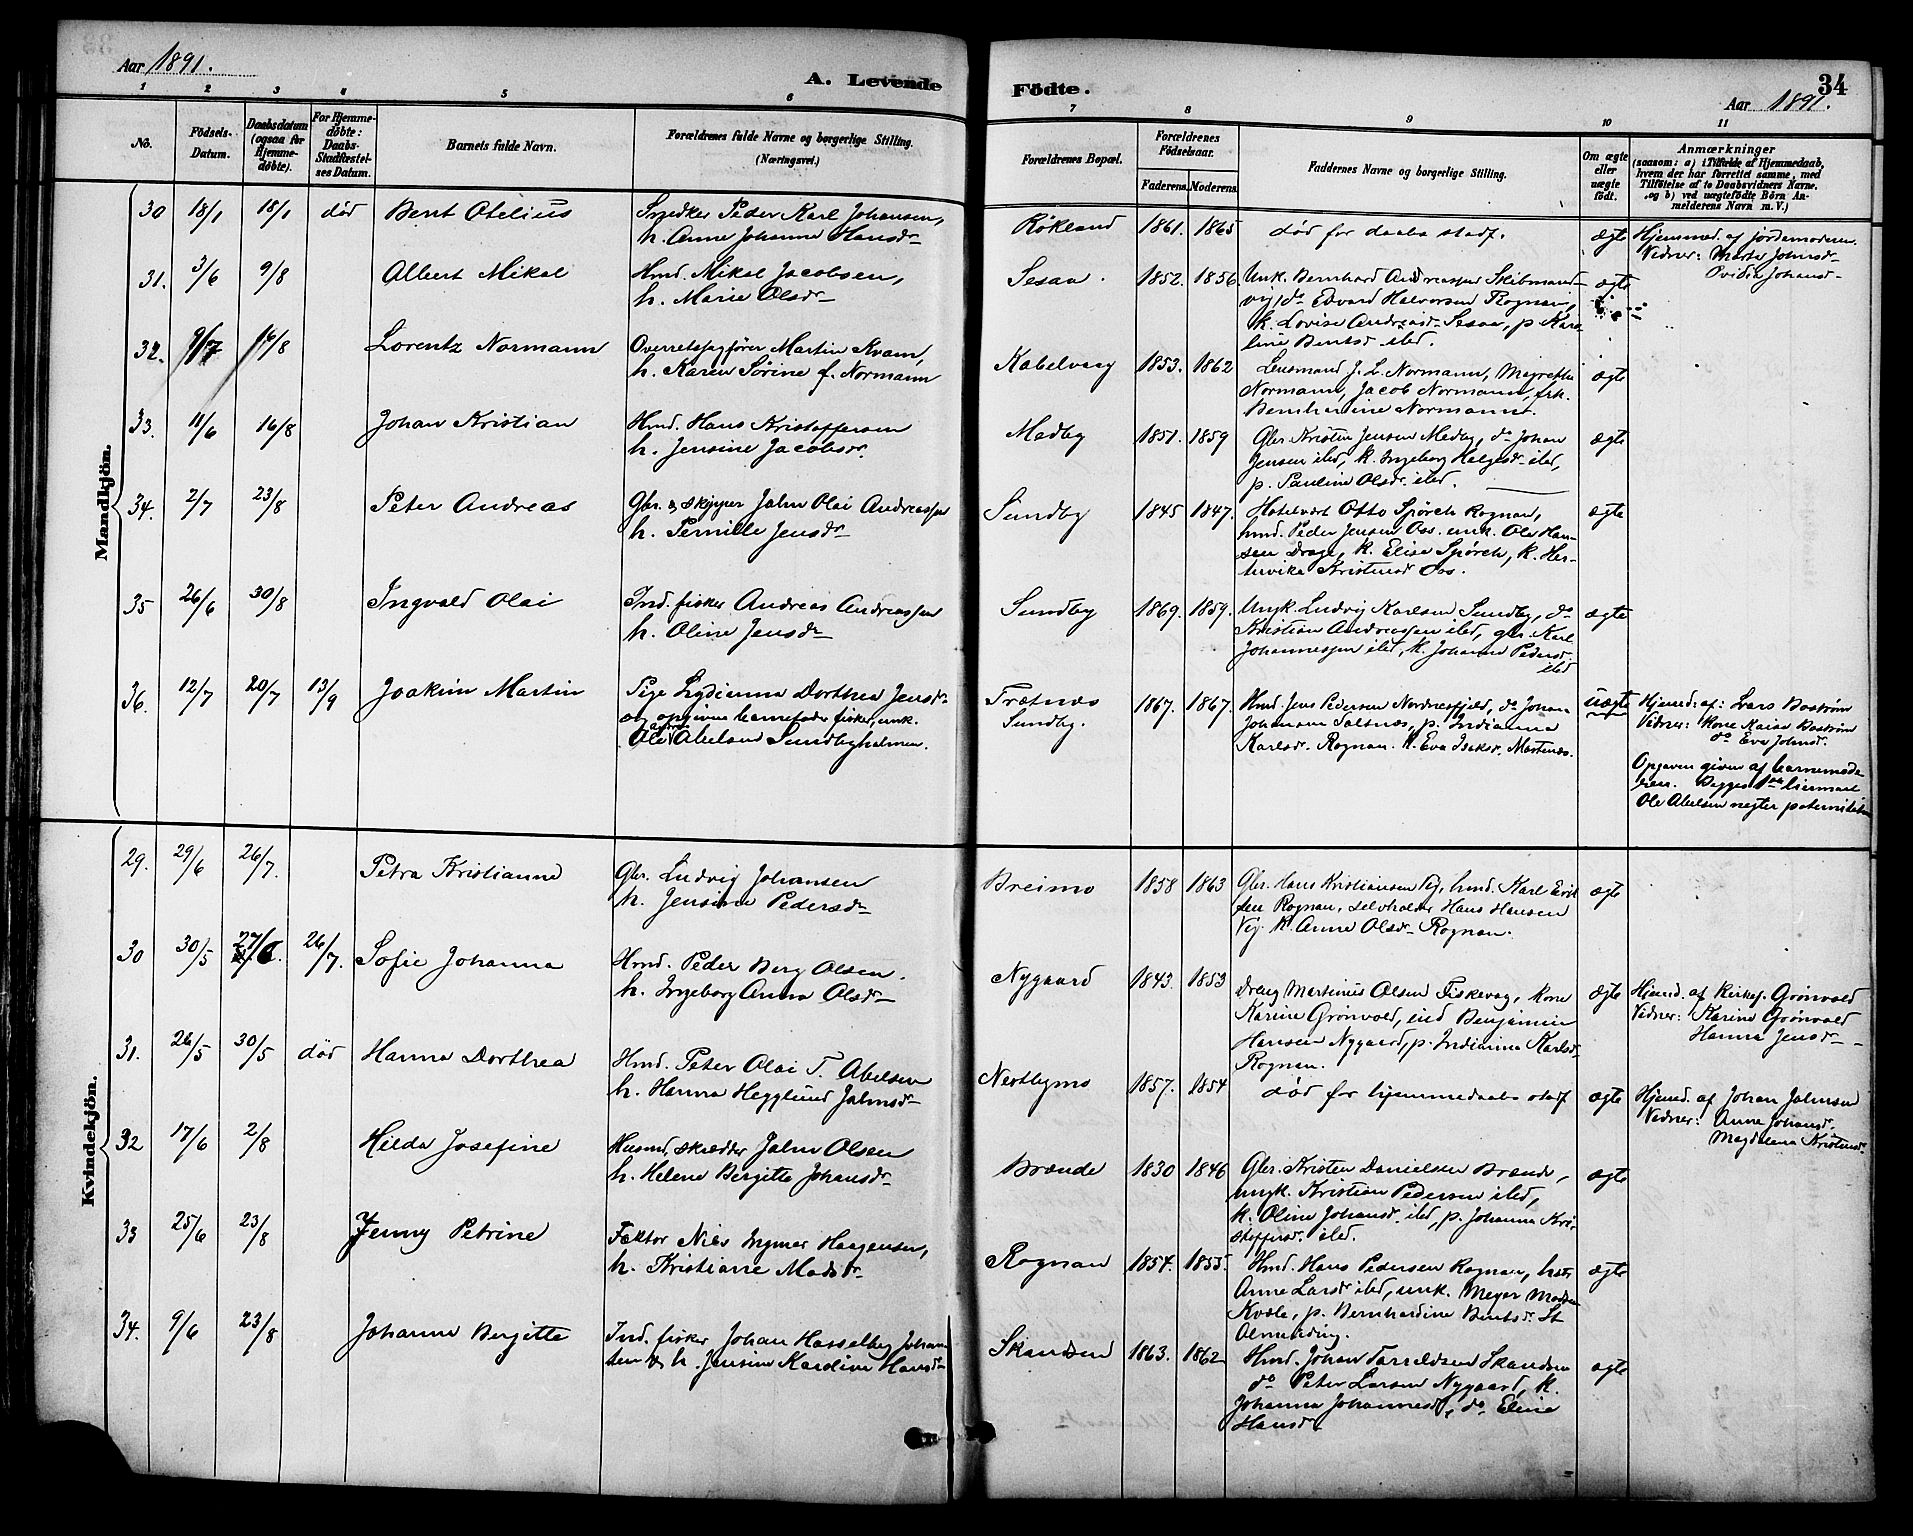 Aar 1891.
A. Levende Födte.
34
Aar 1891.
1 2 3 4 5 6 7 8 9 10 11
No.
Födsels-Datum.
Daabsdatum (ogsaa for Hjemmedöbte).
For Hjemmedöbte: Daabs-Stadfæstelses Datum.
Barnets fulde Navn.
Forældrenes fulde Navne og borgerlige Stilling.
(Næringsvei.)
Forældrenes Bopæl.
Forældrenes Födselsaar.
Faderens. Moderens.
Faddernes Navne og borgerlige Stilling.
Om ægte eller uægte födt.
Anmærkninger
(saasom: a) i Tilfælde af Hjemmedaab, hvem der har forrettet samme, med Tilföielse af to Daabsvidners Navne, og b) ved uægtefödte Börn Anmelderens Navn m. V.)
Mandkjön.
30 18/1 18/1 död Bent Otelius
Peder Karl Johansen,
h. Anne Johanne Hansdr
Røkland 1861. 1865
död før daabs stadf.
ægte
Hjemmed. af jordemoderen.
Vidner: Marte Johnsdr
Ovidia Johansdr
31. 3/6 9/8 Albert Mikal
Hmd. Mikal Jacobsen,
h. Marie Olsdr
Sesaa. 1852. 1856.
Unk. Bernhard Andreassen Skibmandvig, do Edvard Halvorsen Rognan,
k. Lovise Andreasdr Sesaa, p. Karoline Bentsdr ibd.
ægte
32. 9/7 16/8 Lorentz Normann
Overretssagfører Martin Kvam,
h. Karen Sørine f. Normann
Kabelvaag 1853. 1862
Lensmand J. L. Normann, Magrethe
Normann, Jacob Normann, frk.
Bernhardine Normann.
ægte
33. 11/6 16/8 Johan Kristian
Hmd. Hans Kristoffersen
h. Jensine Jacobsdr.
Medby 1851. 1859
Gbr. Kristen Jensen Medby, do Johan
Jensen ibd, k. Ingeborg Helgesdr ibd,
p. Pauline Olsdr ibd.
ægte
34. 2/7 23/8 Peter Andreas
Gbr. & skipper Jahn Olai Andreassen
h. Pernille Jensdr
Sundby 1845 1847.
Hotelvært Otto Spørck Rognan,
hmd. Peder Jensen Os. unk. Ole Hansen Drage, k. Elise Spørck, k. Hertevika Kristensdr Os.
ægte
35 26/6 30/8 Ingvald Olai
Ind. fisker Andreas Andreassen
h. Oline Jensdr
Sundby 1869. 1859.
Ungk. Ludvig Karlsen Sundby, do
Kristian Andreassen ibd, gbr. Karl
Johannessen ibd, k. Johanna Pedersdr
ibd
ægte
36. 12/7 20/7 13/9 Joakim Martin
Pige Lydianna Dorthea Jensdr
og opgiven barnefader fisker, unk.
Ole Abelsen Sundbyholmen.
Trætnes
Sundby. 1867. 1867.
Hmd. Jens Pedersen Nordnesfjeld, do Johan
Johansen Saltnes, p. Indianna
Karlsdr. Rognan. k. Eva Isaksdr.
uægte
Hjemd. af: Lars Bostrøm
Vidner: Kone Karen Bostrøm
do Eva Johnsdr.
Opgaven given af barnemoderen. Begges
Ole Abelsen negter paterniteten
Kvindekjön.
29. 29/6 26/7. Petra Kristianne
Gbr. Ludvig Johansen
h. Jensine Pedersdr
Breimo 1858 1863
Gbr. Hans Kristiansen Vig, hmd. Karl Eriksen Rognan, selvholder Hans Hansen
Vig. k. Anne Olsdr Rognan.
ægte
30 30/5 27/6. 26/7. Sofie Johanna
Hmd. Peder Berg Olsen.
h. Ingeborg Anna Olsdr
Nygaard 1843. 1853
Dreng Martinus Olsen Fiskevag, kone
Karine Grønvold, ind Benjamin
Hansen Nygaard, p. Indianna Karlsdr
Rognan.
ægte
Hjemd. af Kirkes. Grønvold
Vidner: Karine Grønvold
Hanna Jensdr
31. 26/5 30/5 död Hanna Dorthea
Hmd. Peter Olai T. Abelsen
h. Hanna Hegglund Jahnsdr
Nestbymo 1857. 1854
död før hjemmedaabs stadf
ægte
Hjemd. af Johan Jahnsen
Vidner: Anne Johansdr.
Magdalena Kristensdr
32 17/6 2/8 Hilda Josefine
Husmd, skrædder Jahn Olsen
h. Helene Bergitte Johansdr
Brænde 1830 1846
Gbr. Kristen Danielsen Brænde,
ungk. Kristian Pedersen ibd,
k. Oline Johansdr. ibd, p. Johanna Kristoffersdr. ibd.
ægte
33 25/6 23/8 Jenny Petrine
Faktor Nils Ingmar Haagensen,
h. Kristiane Madsdr
Rognan 1854. 1855.
Hmd. Hans Pedersen Rognan,
Anne Larsdr ibd, unk. Meyer Madsen
Kvæle, p. Bernhardine Bentsdr. St
Almending.
ægte
34. 9/6 23/8 Johanne Bergitte
Ind. fisker Johan Hasselberg Johansen & h. Jensine Karoline Hansdr
Skandsen 1863. 1862
Hmd. Johan Tarreldsen Skandsen
do Peter Larsen Nygaard, k.
Johanna Johannesdr, do Eline
Hansdr
ægte